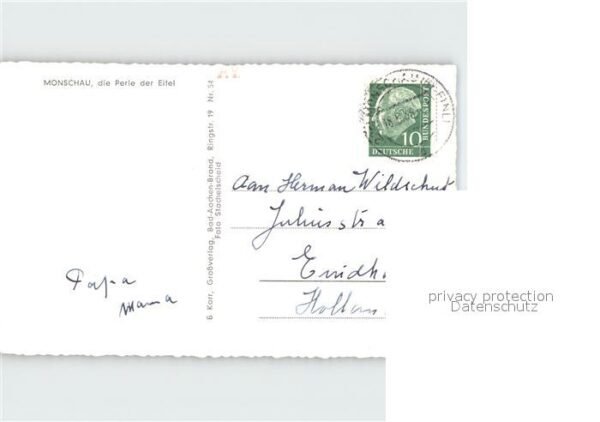 MONSCHAU, die Perle der Eifel
B. Korr, Großverlag, Bad-Aachen-Brand, Ringstr. 19 Nr. 54
Foto Stachelscheid
10
DEUTSCHE
BUNDESPOST
Aan Herman Wildschut
Juliusstra
Eindh
Hollan
Papa
Mama
privacy protection
Datenschutz